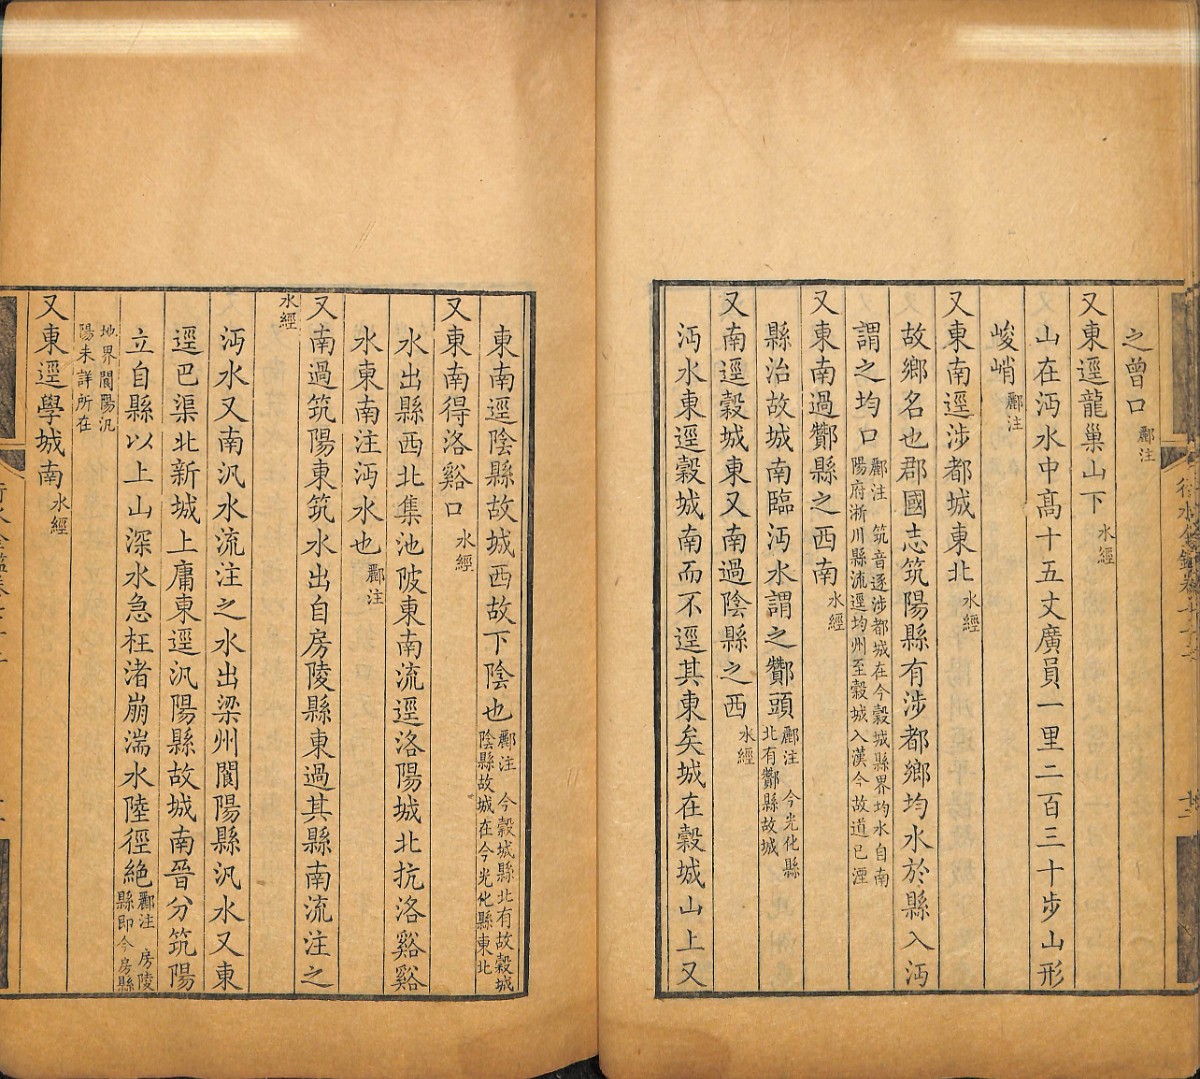 之曾口酈注
又東逕龍巢山下水經
山在沔水中高十五丈廣員一里二百三十步山形
峻峭酈注
又東南逕涉都城東北水經
故鄉名也郡國志筑陽縣有涉都鄉均水於縣入沔
謂之均口酈注 筑音逐涉都城在今穀城縣界均水自南陽府淅川縣流逕均州至穀城入漢今故道已湮
又東南過酇縣之西南水經
縣治故城南臨沔水謂之酇頭酈注 今光化縣北有酇縣故城
又南逕穀城東又南過陰縣之西水經
沔水東逕穀城南而不逕其東矣城在穀城山上又
東南逕陰縣故城西故下陰也酈注 今穀城縣北有故穀城陰縣故城在今光化縣東北
又東南得洛谿口水經
水出縣西北集池陂東南流逕洛陽城北抗洛谿谿
水東南注沔水也酈注
又南過筑陽東筑水出自房陵縣東過其縣南流注之
水經
沔水又南汎水流注之水出梁州閬陽縣汎水又東
逕巴渠北新城上庸東逕汎陽縣故城南晉分筑陽
立自縣以上山深水急枉渚崩湍水陸徑絶酈注 房陵縣即今房縣
地界閬陽汎陽未詳所在
又東逕學城南水經